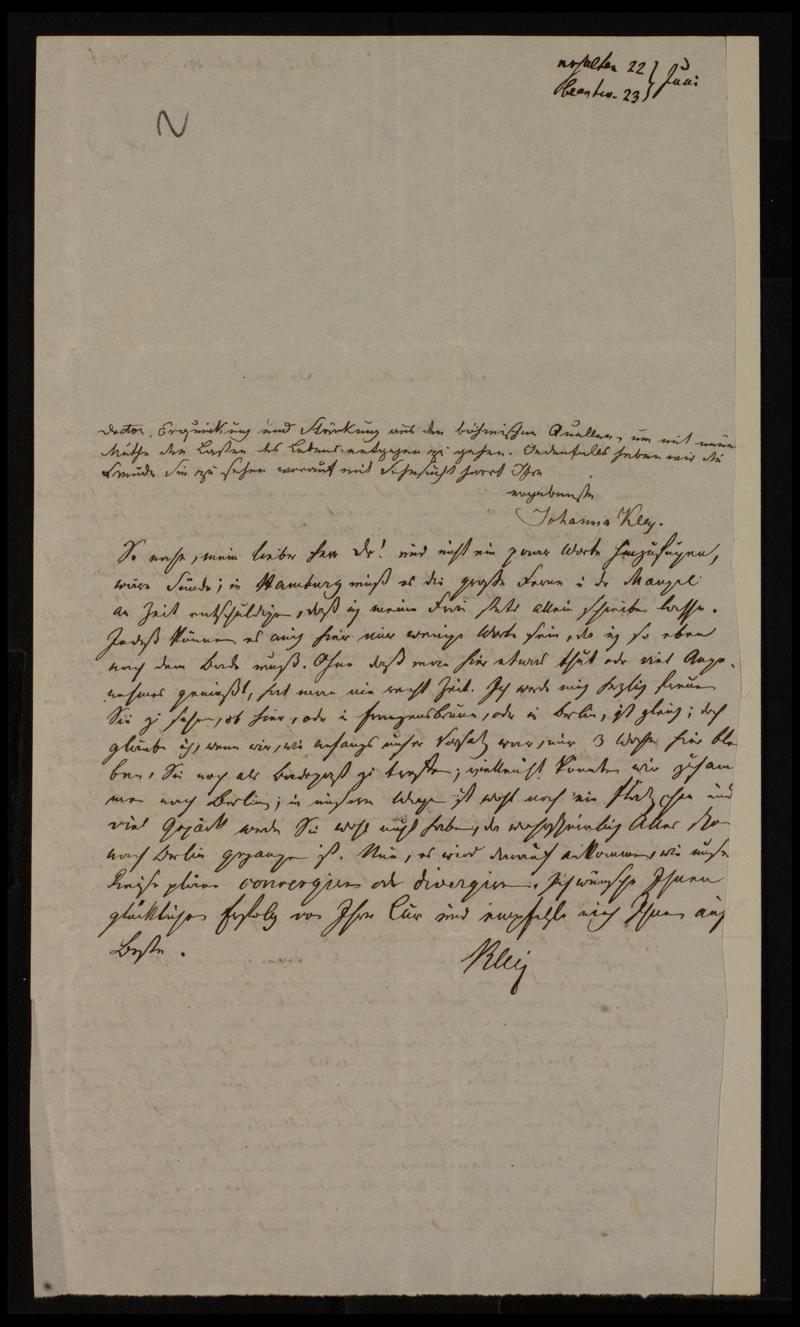 erhalten 22 } Juni
beantw. 23 }
N
Doctor, Erquickung und Stärkung aus den böhmischen Quellen, um mit neuem
Muthe den Lasten des Lebens entgegen zu gehen. Jedenfalls haben wir die
Freude Sie zu sehen worauf mit Sehnsucht harrt Ihre
ergebenste
Johanna Kley.
So nahe, mein lieber Herr Dr! und nicht ein paar Worte hinzufügen,
wäre Sünde; in Hamburg muß es die große Ferne u der Mangel
an Zeit entschuldigen, daß ich meine Frau stets allein schreiben lasse.
Indeß können es auch hier nur wenige Worte sein, da ich so eben
nach dem Bade muß. Ohne daß man hier etwas thut oder viel Ange-
nehmes genießt, hat man nie recht Zeit. Ich werde mich herzlich freuen
Sie zu sehen, ob hier, oder in Franzensbrunn, oder in Berlin, ist gleich; doch
glaube ich, wenn wir, wie anfangs unser Vorsatz war, nur 3 Wochen hier blei
ben, Sie noch als Badegast zu treffen; vielleicht könnten wir zusam
men nach Berlin; in unserem Wagen ist wohl noch ein Plätzchen und
viel Gepäck werden Sie wohl nicht haben, da wahrscheinlich Alles
nach Berlin gegangen ist. Nun, es wird darauf ankommen, wie unsre
Reise pläne convergiren oder divergiren. Ich wünsche Ihnen
glücklichen Erfolg von Ihrer Cur und empfehle mich Ihnen aufs
Beste.
Kley